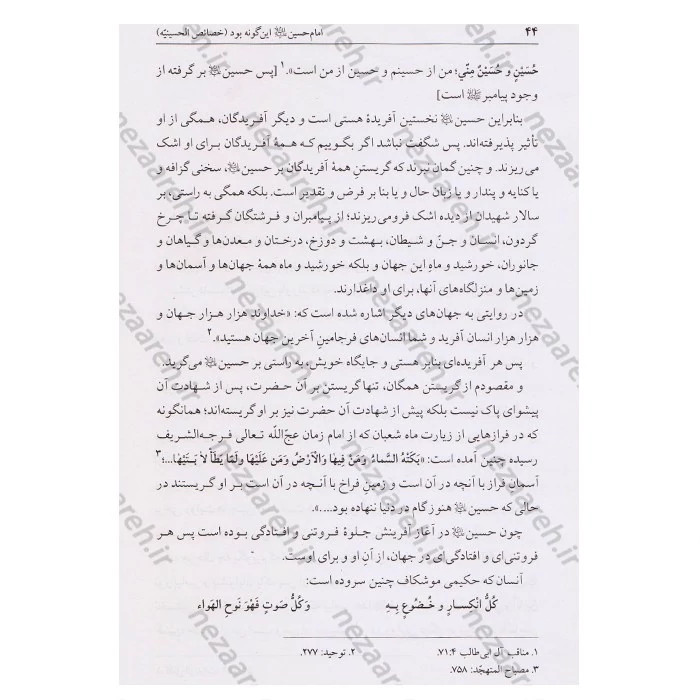 ۴۴
امام حسین ﷷ این‌گونه بود (خصائص الحسینیّه)
حُسَیْنٍ و حُسَیْنٌ مِنّي؛ من از حسینم و حسین از من است».۱ [پس حسین بر گرفته از
وجود پیامبر است]
بنابراین حسین نخستین آفریدهٔ هستی است و دیگر آفریدگان، همگی از او
تأثیر پذیرفته‌اند. پس شگفت نباشد اگر بگوییم که همهٔ آفریدگان برای او اشک
می‌ریزند. و چنین گمان نبرند که گریستنِ همهٔ آفریدگان بر حسین، سخنی گزافه و
یا کنایه و پندار و یا زبان حال و یا بنا بر فرض و تقدیر است. بلکه همگی به راستی، بر
سالار شهیدان از دیده اشک فرو می‌ریزند؛ از پیامبران و فرشتگان گرفته تا چرخ
گردون، انسان و جنّ و شیطان، بهشت و دوزخ، درختان و معدن‌ها و گیاهان و
جانوران، خورشید و ماهِ این جهان و بلکه خورشید و ماه همهٔ جهان‌ها و آسمان‌ها و
زمین‌ها و منزلگاه‌های آنها، برای او داغدارند.
در روایتی به جهان‌های دیگر اشاره شده است که: «خداوند هزار هزار جهان و
هزار هزار انسان آفرید و شما انسان‌های فرجامینِ آخرین جهان هستید».۲
پس هر آفریده‌ای بنابر هستی و جایگاه خویش، به راستی بر حسین می‌گرید.
و مقصودم از گریستن همگان، تنها گریستن بر آن حضرت، پس از شهادت آن
پیشوای پاک نیست بلکه پیش از شهادت آن حضرت نیز بر او گریسته‌اند؛ همانگونه
که در فرازهایی از زیارت ماه شعبان که از امام زمان عجّل‌اللّه تعالی فرجه‌الشریف
رسیده چنین آمده است: «بَکَتْهُ السَّماءُ وَمَنْ فِیهَا وَالْاَرْضُ وَمَنْ عَلَیْهَا وَلَمَّا یَطَأْ لاَبَتَیْهَا...؛۳
آسمان فراز با آنچه در آن است و زمینِ فراخ با آنچه در آن است بر او گریستند در
حالی که حسین هنوز گام در دنیا ننهاده بود...».
چون حسین در آغاز آفرینش جلوهٔ فروتنی و افتادگی بوده است پس هر
فروتنی‌ای و افتادگی‌ای در جهان، از آنِ او و برای اوست.
آنسان که حکیمی موشکاف چنین سروده است:
کُلُّ انْکِسارٍ و خُضُوعٍ بِهِ وَکُلُّ صَوتٍ فَهْوَ نَوحُ الهَواء
۱. مناقب آل ابی‌طالب ۷۱:۴. ۲. توحید: ۲۷۷.
۳. مصباح المتهجّد: ۷۵۸.
nezaareh.ir